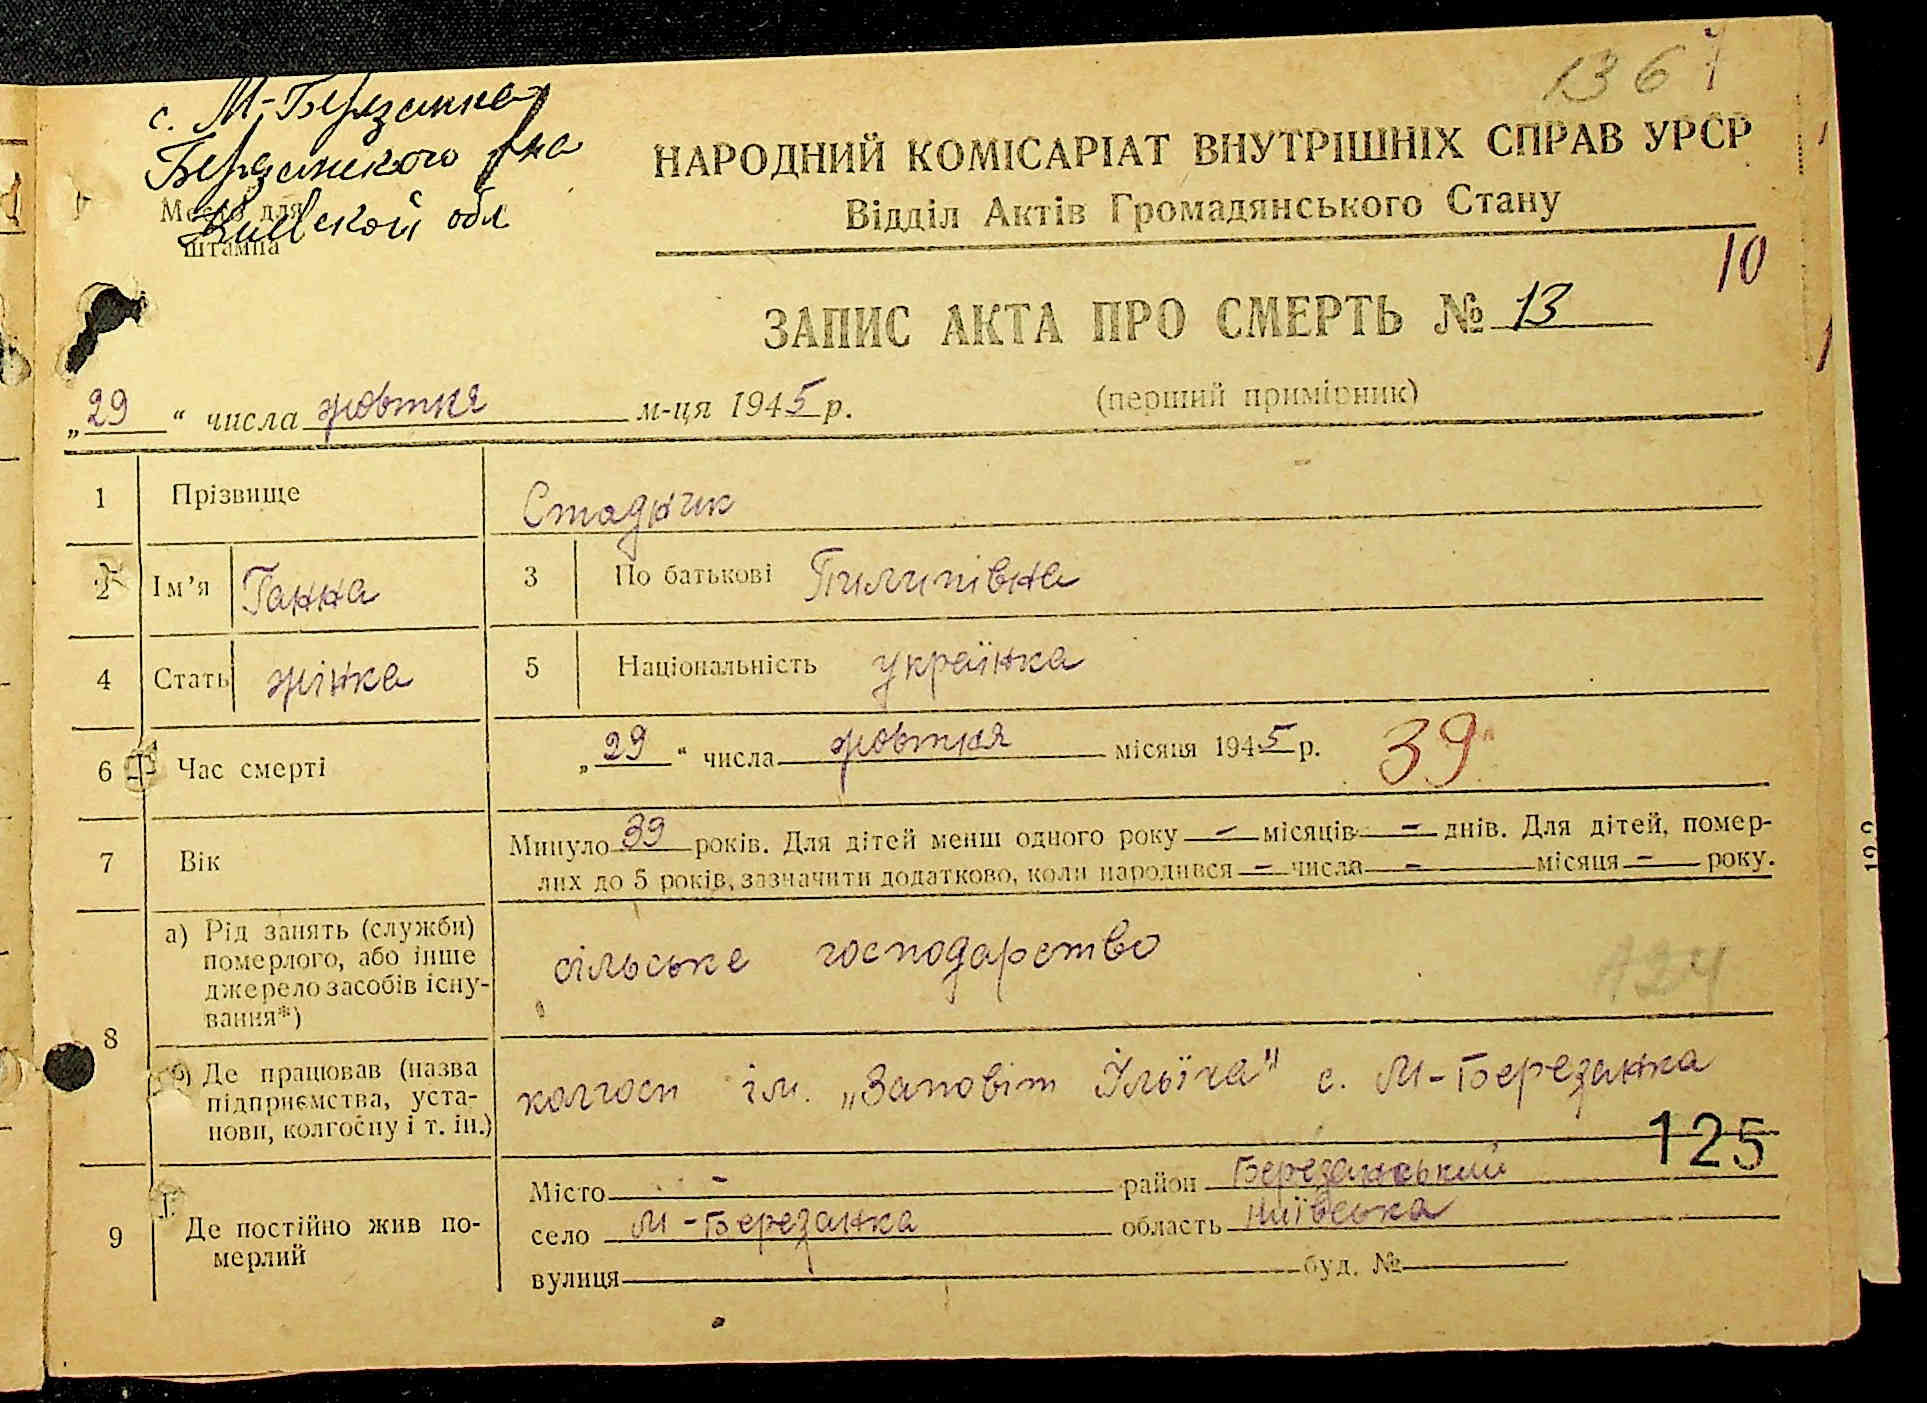 1367
с. М-Березанка
Березанского р-на
Киевской обл
Место для
штампа
НАРОДНИЙ КОМІСАРІАТ ВНУТРІШНІХ СПРАВ УРСР
Відділ Актів Громадянського Стану
10
ЗАПИС АКТА ПРО СМЕРТЬ № 13
„29“ числа жовтня м-ця 1945 р. (перший примірник)
1 Прізвище Стаднчик
2 Ім’я Ганна 3 По батькові Пилипівна
4 Стать жінка 5 Національність українка
6 Час смерті „29“ числа жовтня місяця 1945 р. 39
7 Вік Минуло 39 років. Для дітей менш одного року – місяців – днів. Для дітей, помер-
лих до 5 років, зазначити додатково, коли народився – числа – місяця – року.
8 а) Рід занять (служби)
померлого, або інше
джерело засобів існу-
вання*)
сільське господарство
124
б) Де працював (назва
підприємства, уста-
нови, колгоспу і т. ін.)
колгосп ім. „Заповіт Ілліча" с. М-Березанка
125
9 Де постійно жив по-
мерлий
Місто – район Березанський
село М-Березанка область Київська
вулиця буд. №